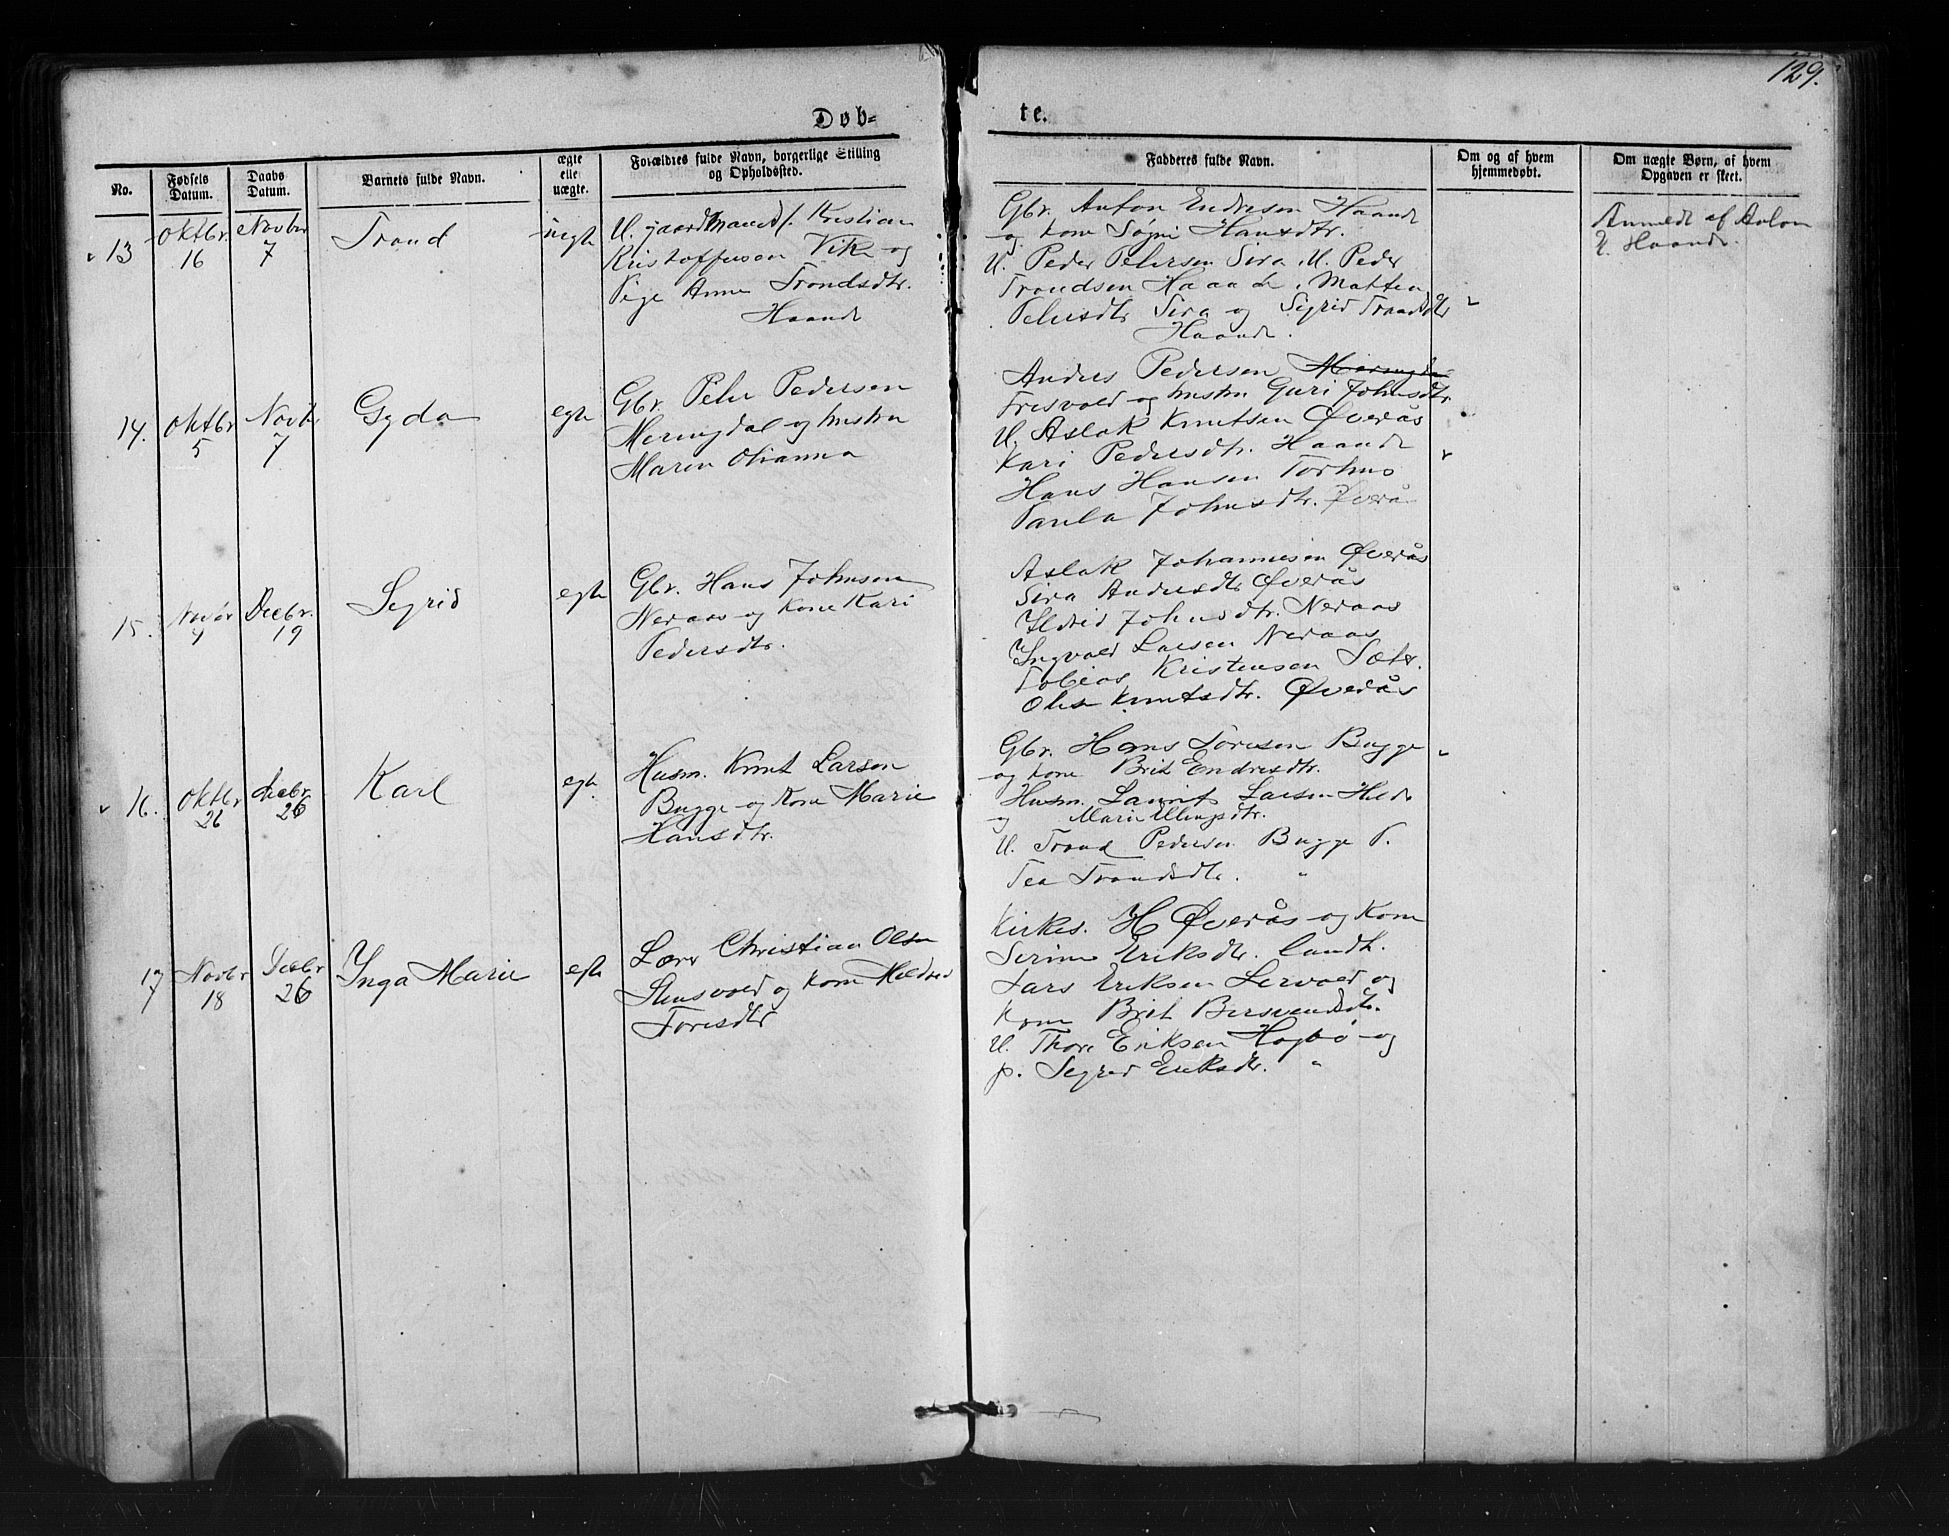 129.
Døb=
te.
No.
Fødsels Datum.
Daabs Datum.
Barnets fulde Navn.
ægte elle uægte.
Forældres fulde Navn, borgerlige Stilling og Opholdssted.
Fadderes fulde Navn.
Om og af hvem hjemmedøbt.
Om uægte Børn, af hvem Opgaven er skeet.
13
Oktbr. 16
Novbr 7
Trond
uegte
U. gaardmands. Kristian
Kristoffersen Vik og
Pige Anne Trondsdtr.
Haande
Gbr. Anton Endresen Haande
og kone Søgni Hansdtr.
U. Peder Petersen Sira, U. Peder
Trondsen Haande, Mattea
Petersdtr Sira og Sigrid Trondsdtr
Haande.
Anmeldt af
U. Haande.
14.
Oktbr 5
Novbr 7
Gyda
egte
Gbr. Peter Pedersen
Meringdal og hustru
Maren Olianna
Anders Pedersen Meringdal
Tresvold og hustru Guri Johnsdtr.
U. Aslak Knutsen Øverås
Kari Pedersdtr. Haande
Hans Hansen Torhus
Paula Johnsdtr. Øverås
15.
Novbr 4
Decbr. 19
Segrid
egte
Gbr. Hans Johnsen
Neraas og kone Kari
Pedersdtr.
Aslak Johannesen Øverås
Sira Andersdtr Øverås
Ildrid Johnsdtr. Neraas
Ingvald Larsen Neraas
Tobias Kristensen Sæter.
Olise Knutsdtr. Øverås
16.
Oktbr 26
Decbr 26
Karl
egte
Husm. Knut Larsen
Bugge og kone Marie
Hansdtr.
Gbr. Hans Toresen Bugge
og kone Brit Endresdtr.
Husm. Laurits Larsen Hilde
og Marie Ellingsdtr.
U. Trond Pedersen Bugge P.
Tea Trondsdtr. "
17
Novbr 18
Decbr 26
Inga Marie
egte
Lærer Christian Olsen
Stensvold og kone Mildrid
Toresdtr
Kirkes. H Øverås og kone
Serine Eriksdtr. Candt.
Lars Eriksen Lervold og
kone Brit Bersvendsdtr.
U. Thore Eriksen Hagbø og
p. Segrid Eriksdtr. "